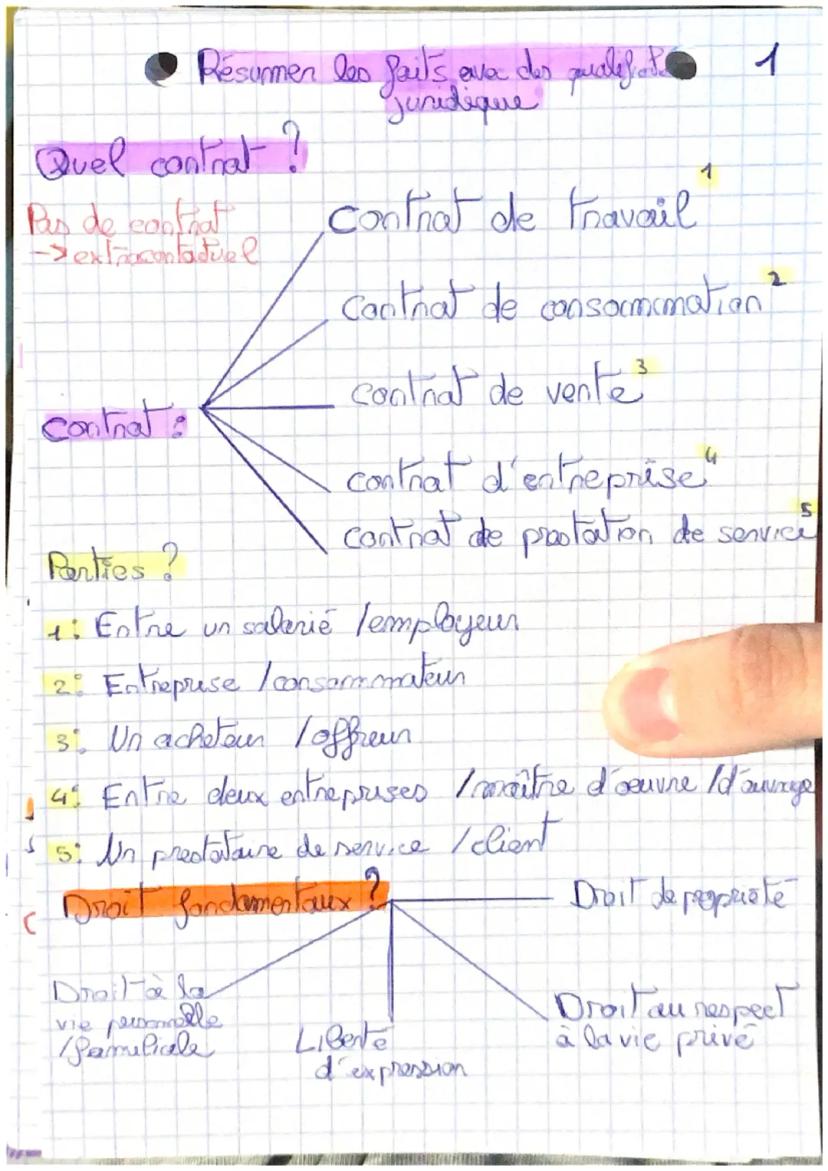 Résumer les faits avec des qualificat°
juridique
1
Quel contrat ?
Pas de contrat
-> extracontactuel
Contrat :
Contrat de travail 1
Contrat de consommation 2
contrat de vente 3
contrat d'entreprise 4
contrat de prestation de service 5
Parties ?
1: Entre un salarié /employeur
2: Entreprise /consommateur
3: Un acheteur /offreur
4: Entre deux entreprises /maître d'œuvre /d'ouvrage
5: Un prestataire de service /client
Droit fondamentaux ?
Droit de propriété
Droit à la
vie personnelle
/familiale
Liberté
d'expression
Droit au respect
à la vie privé